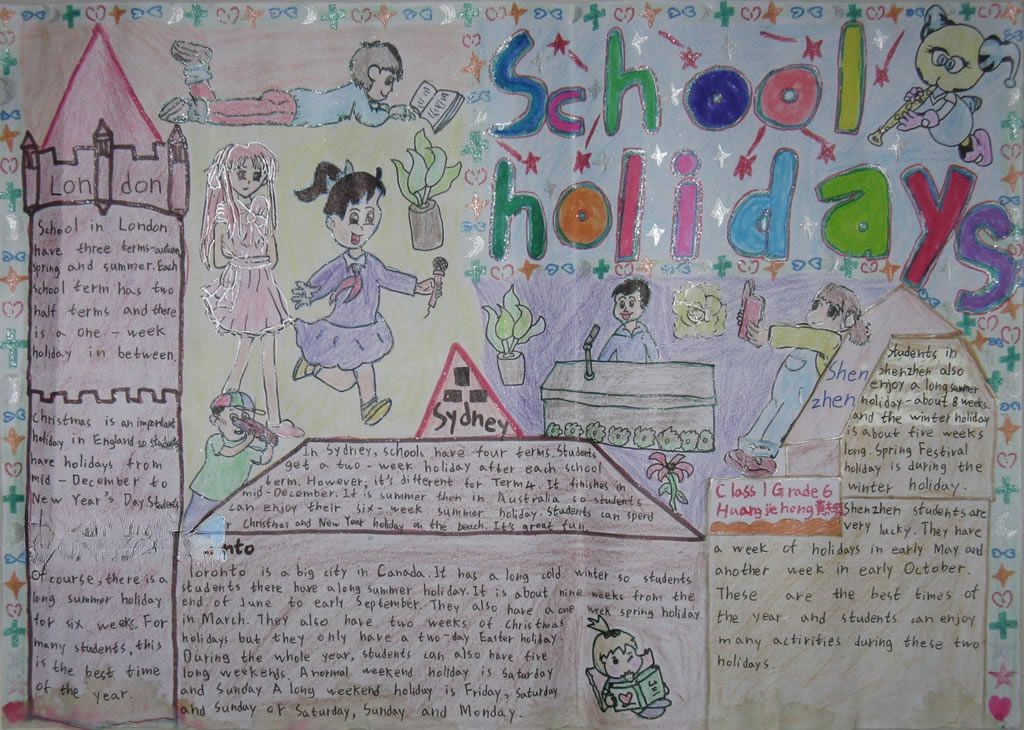 School
holidays
London
School in London
have three terms-autumn
spring and summer. Each
school term has two
half terms and there
is a one - week
holiday in between.
Christmas is an important
holiday in England so students
have holidays from
mid - December to
New Year's Day. Students
Of course, there is a
long summer holiday
for six weeks. For
many students, this
is the best time
of the year.
Sydney
In Sydney, schools have four terms. Students
get a two - week holiday after each school
term. However, it's different for Term 4. It finishes in
mid-December. It is summer then in Australia so students
can enjoy their six-week summer holiday. Students can spend
Christmas and New Year holiday on the beach. It's great fun.
nto
Toronto is a big city in Canada. It has a long cold winter so students
students there have a long summer holiday. It is about nine weeks from the
end of June to early September. They also have a one week spring holiday
in March. They also have two weeks of Christmas
holidays but they only have a two-day Easter holiday.
During the whole year, students can also have five
long weekends. A normal weekend holiday is Saturday
and Sunday A long weekend holiday is Friday, Saturday
and Sunday or Saturday, Sunday and Monday.
Shen
zhen
Students in
Shenzhen also
enjoy a long summer
holiday - about 8 weeks.
and the winter holiday
is about five weeks
long. Spring Festival
holiday is during the
winter holiday.
Class 1 Grade 6
Huang jie hong
Shenzhen students are
very lucky. They have
a week of holidays in early May and
another week in early October.
These are the best times of
the year and students can enjoy
many activities during these two
holidays.